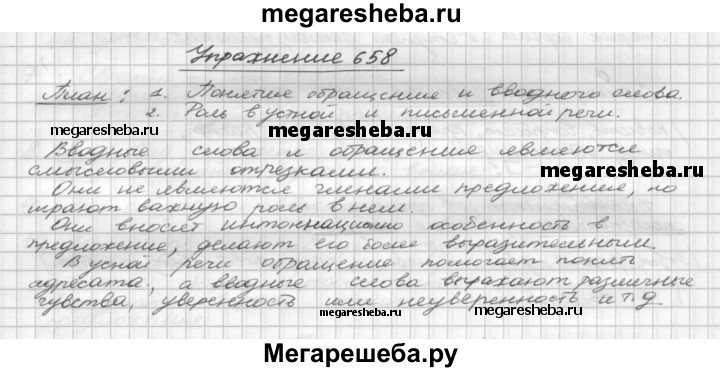 megaresheba.ru
Упражнение 658
План: 1. Понятие обращение и вводного слова.
2. Роль в устной и письменной речи.
megaresheba.ru
megaresheba.ru
Вводные слова и обращения являются
смысловыми отрезками.
megaresheba.ru
Они не являются членами предложение, но
играют важную роль в нем.
Они вносят интонационно особенность в
предложение, делают его более выразительными.
В усной речи обращение помогает понять
адресата, а вводные слова выражают различные
чувства, уверенность или неуверенность и т.д.
megaresheba.ru
megaresheba.ru
Мегарешеба.ру